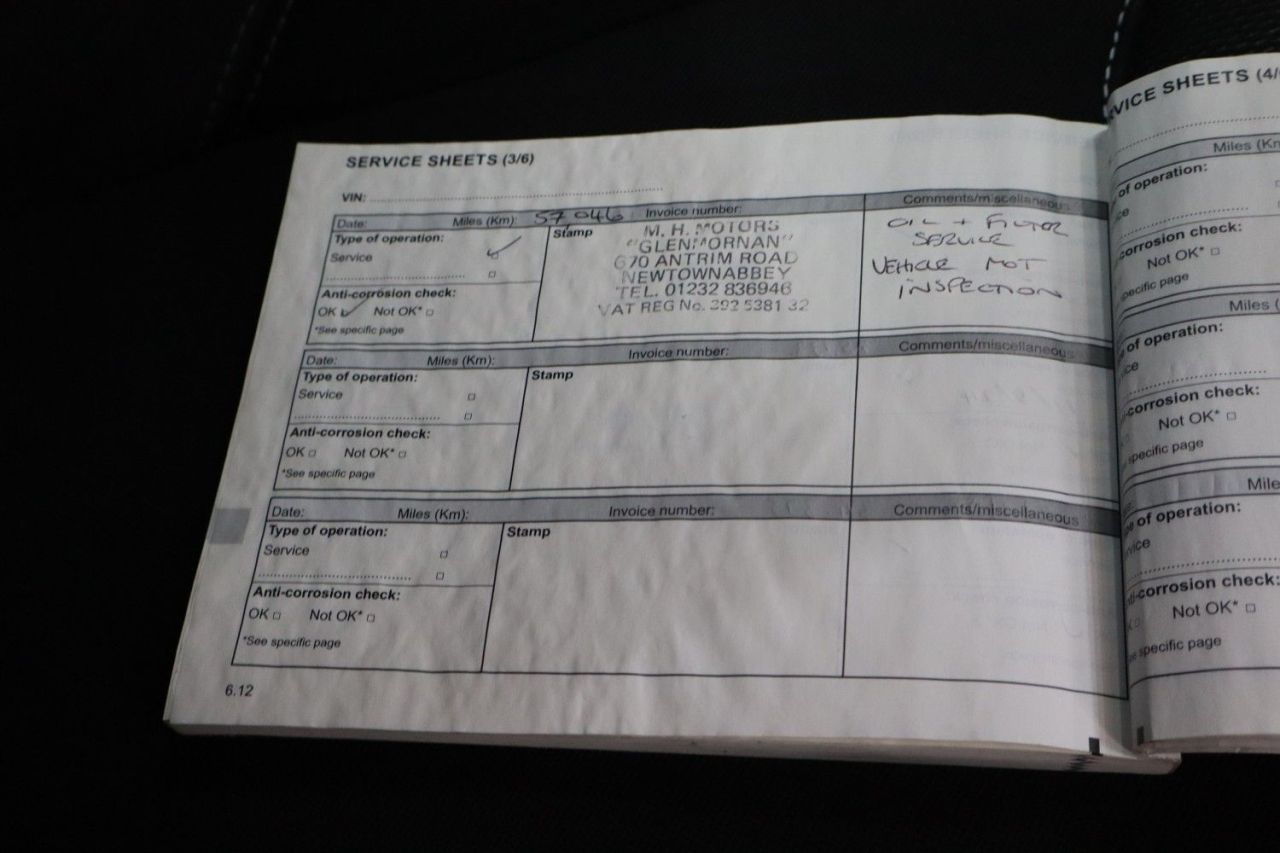 SERVICE SHEETS (3/6)
VIN:
Date: Miles (Km): 57,046 Invoice number: Comments/miscellaneous
Type of operation:
Service
Anti-corrosion check:
OK Not OK*
*See specific page
Stamp
M. H. MOTORS
"GLENMORNAN"
670 ANTRIM ROAD
NEWTOWNABBEY
TEL. 01232 836946
VAT REG No. 392 5381 32
OIL + FILTER
SERVICE
VEHICLE MOT
INSPECTION
Date: Miles (Km): Invoice number: Comments/miscellaneous
Type of operation:
Service
Anti-corrosion check:
OK Not OK*
*See specific page
Stamp
Date: Miles (Km): Invoice number: Comments/miscellaneous
Type of operation:
Service
Anti-corrosion check:
OK Not OK*
*See specific page
Stamp
6.12
VICE SHEETS (4/
Miles (Km
of operation:
ce
orrosion check:
Not OK*
pecific page
Miles (
of operation:
ice
-corrosion check:
Not OK*
specific page
Mile
e of operation:
vice
ti-corrosion check:
Not OK*
specific page